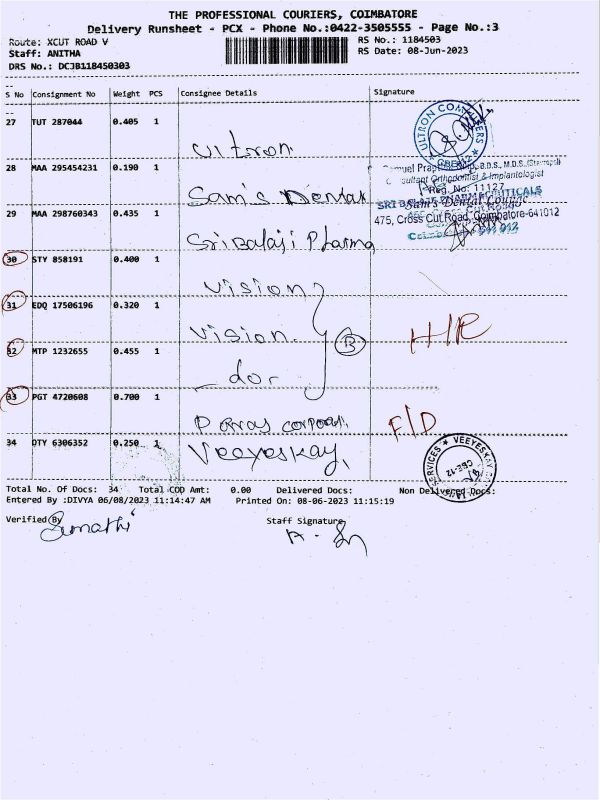 THE PROFESSIONAL COURIERS, COIMBATORE
Delivery Runsheet - PCX - Phone No.:0422-3505555 - Page No.:3
Route: XCUT ROAD V
RS No.: 1184503
Staff: ANITHA
RS Date: 08-Jun-2023
DRS No.: DCJB118450303
S No Consignment No Weight PCS Consignee Details Signature
27 TUT 287044 0.405 1
ULTRON COMPUTERS
CBE-12
Ultron
28 MAA 295454231 0.190 1
Consultant Orthodontist & Implantologist
Reg. No: 11127
Sam's Dental
SRI BALAJI PHARMACEUTICALS
Sam's Dental
29 MAA 298760343 0.435 1
475, Cross Cut Road, Coimbatore-641012
Sri Balaji Pharma
30 STY 858191 0.400 1
Vision
31 EDQ 17506196 0.320 1
Vision.
B
H/R
32 MTP 1232655 0.455 1
do.
33 PGT 4720608 0.700 1
F/D
34 QTY 6306352 0.250 1
Veeyeskay.
VEEYESKAY
SERVICES
CBE-12
Total No. Of Docs: 34 Total COD Amt: 0.00 Delivered Docs: Non Delivered Docs:
Entered By :DIVYA 06/08/2023 11:14:47 AM Printed On: 08-06-2023 11:15:19
Verified By
Sumathi
Staff Signature